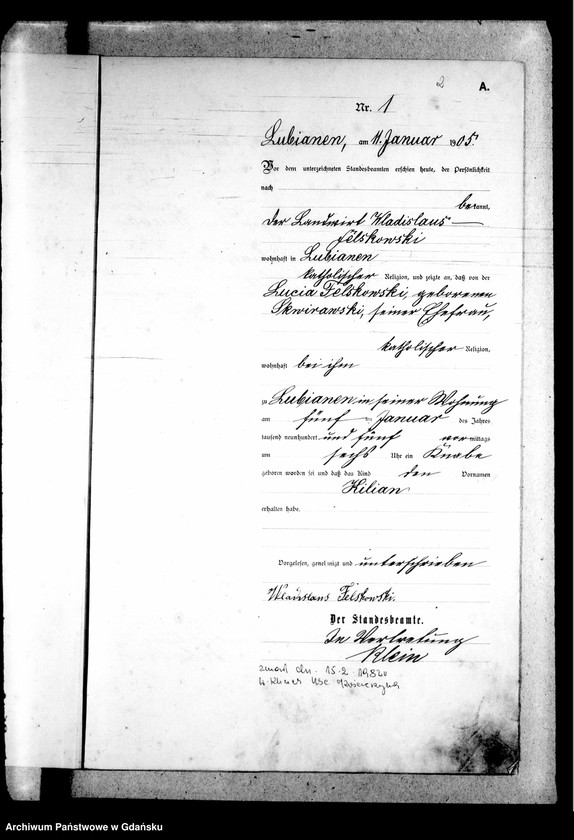 2
A.
Nr. 1
Lubianen, am 11. Januar 1905.
Vor dem unterzeichneten Standesbeamten erschien heute, der Persönlichkeit
nach
bekannt,
der Landwirt Wladislaus
Felskowski
wohnhaft in Lubianen
katholischer Religion, und zeigte an, daß von der
Lucia Felskowski, geborenen
Skwirawski, seiner Ehefrau,
katholischer Religion,
wohnhaft bei ihm
zu Lubianen in seiner Wohnung
am fünf ten Januar des Jahres
tausend neunhundert und fünf vor mittags
um sechs Uhr ein Knabe
geboren worden sei und daß das Kind den Vornamen
Kilian
erhalten habe.
Vorgelesen, genehmigt und unterschrieben
Wladislaus Felskowski.
Der Standesbeamte.
In Vertretung
Klein
zmarł dn. 15.2.1982
USC
Archiwum Państwowe w Gdańsku